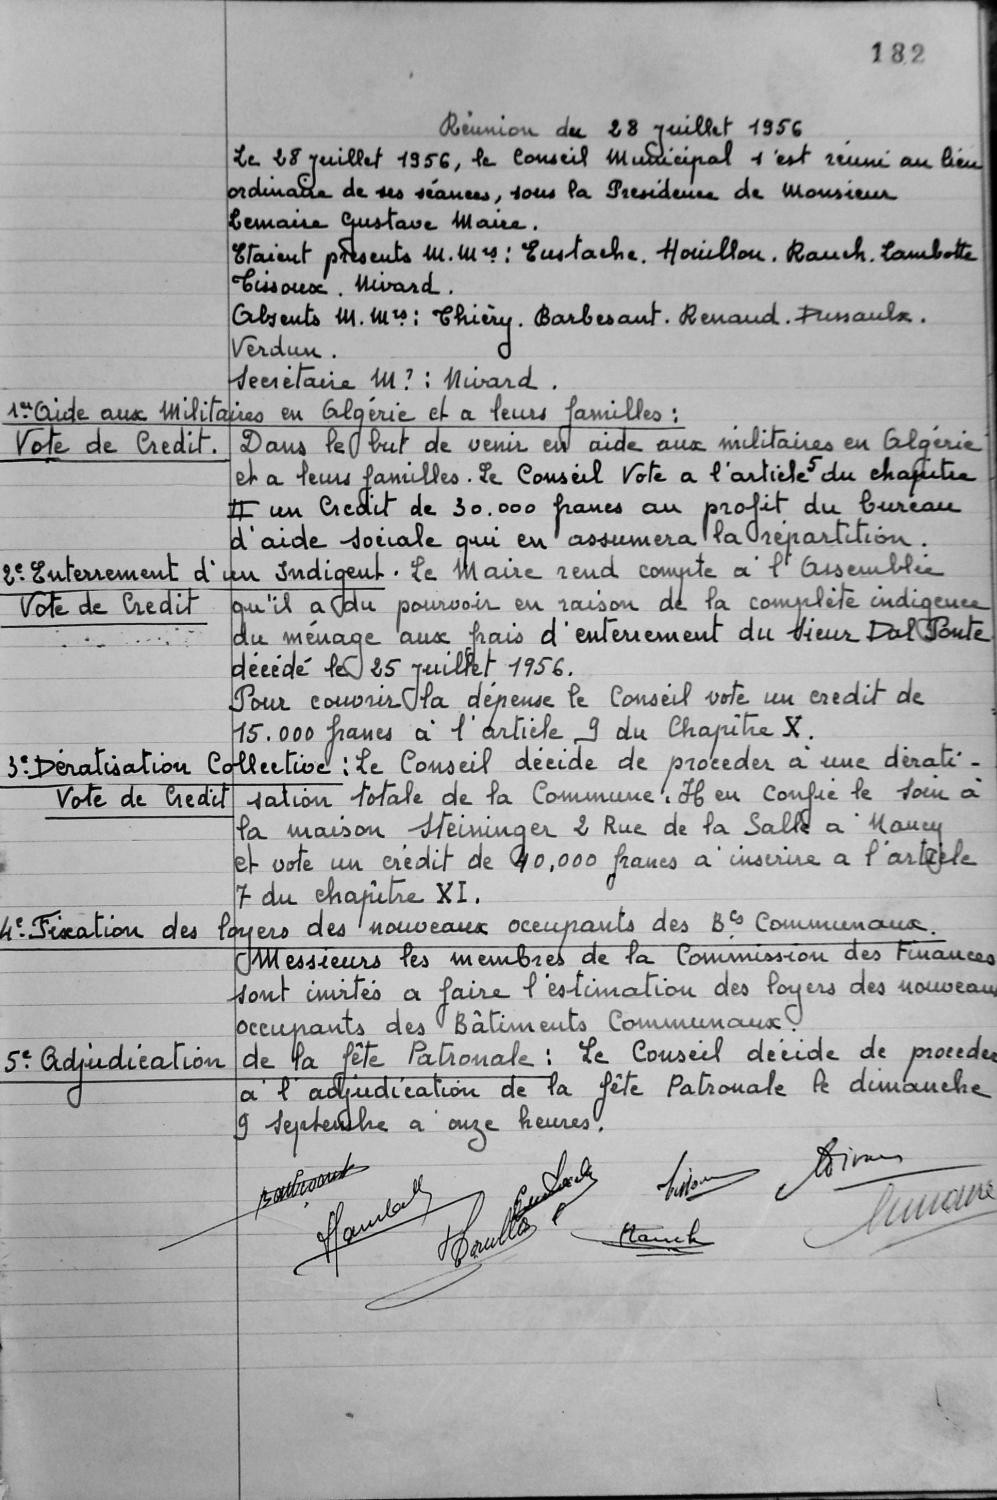 182
Réunion du 28 juillet 1956
Le 28 juillet 1956, le Conseil Municipal s'est réuni au lieu
ordinaire de ses séances, sous la Presidence de Monsieur
Lemaire Gustave Maire.
Etaient présents M.Mrs : Eustache. Houillon. Rauch. Lambotte
Tissoux. Nivard.
Absents M.Mrs : Thiéry. Barbesant. Renaud. Dussaulx.
Verdun.
Secrétaire Mr : Nivard.
1er Aide aux Militaires en Algérie et a leurs familles :
Vote de Credit. Dans le but de venir en aide aux militaires en Algérie
et a leurs familles. Le Conseil Vote a l'article 5 du chapitre
II un Credit de 30.000 francs au profit du bureau
d'aide sociale qui en assumera la répartition.
2e Enterrement d'un Indigent. Le Maire rend compte a l'Assemblée
Vote de Credit qu'il a du pourvoir en raison de la complète indigence
du ménage aux frais d'enterrement du sieur Dal Ponte
décédé le 25 juillet 1956.
Pour couvrir la dépense le Conseil vote un credit de
15.000 francs à l'article 9 du Chapître X.
3e Dératisation Collective : Le Conseil décide de proceder à une dérati-
Vote de Credit sation totale de la Commune. Il en confie le soin à
la maison Steininger 2 Rue de la Salle a Nancy
et vote un crédit de 40,000 francs a inscrire a l'article
7 du chapître XI.
4e Fixation des loyers des nouveaux occupants des Bts Communaux.
Messieurs les membres de la Commission des Finances
sont invités a faire l'estimation des loyers des nouveaux
occupants des Bâtiments Communaux.
5e Adjudication de la fête Patronale : Le Conseil décide de proceder
à l'adjudication de la fête Patronale le dimanche
9 septembre a onze heures.